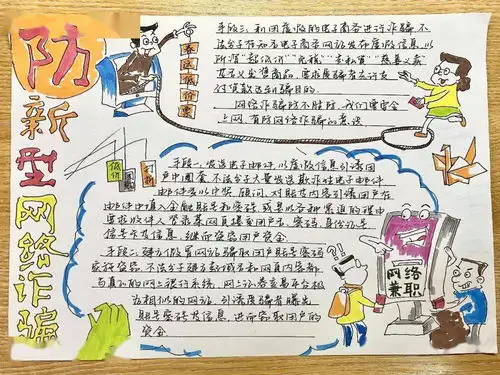 防
新
型
网
络
诈
骗
春运低价票
手段三、利用虚假的电子商务进行诈骗,不
法分子在知名电子商务网站发布虚假信息,以
所谓"超低价""免税""走私货""慈善义卖"
付货款达到骗目的.
网络诈骗防不胜防,我们要安全
上网,有防网络诈骗的意识
低价
打折
手段一.发送电子邮件,以虚假信息引诱用
户中圈套,不法分子大量发送欺诈性电子邮件
邮件多以中奖、顾问、对账等内容引诱用户在
邮件中填入金融账号和密码,或是以各种紧迫的理由
要求收件人登录某网页提交用户名、密码、身份证号、
信用卡等信息,继而盗窃用户资金
手段二、建立假冒网站骗取用户账号密码
实施盗窃,不法分子建立起域名和网页内容都
与真正的网上银行系统、网上证券交易平台极
为相似的网站,引诱用户输出
账号密码等信息,进而窃取用户的
资金
网络
兼职